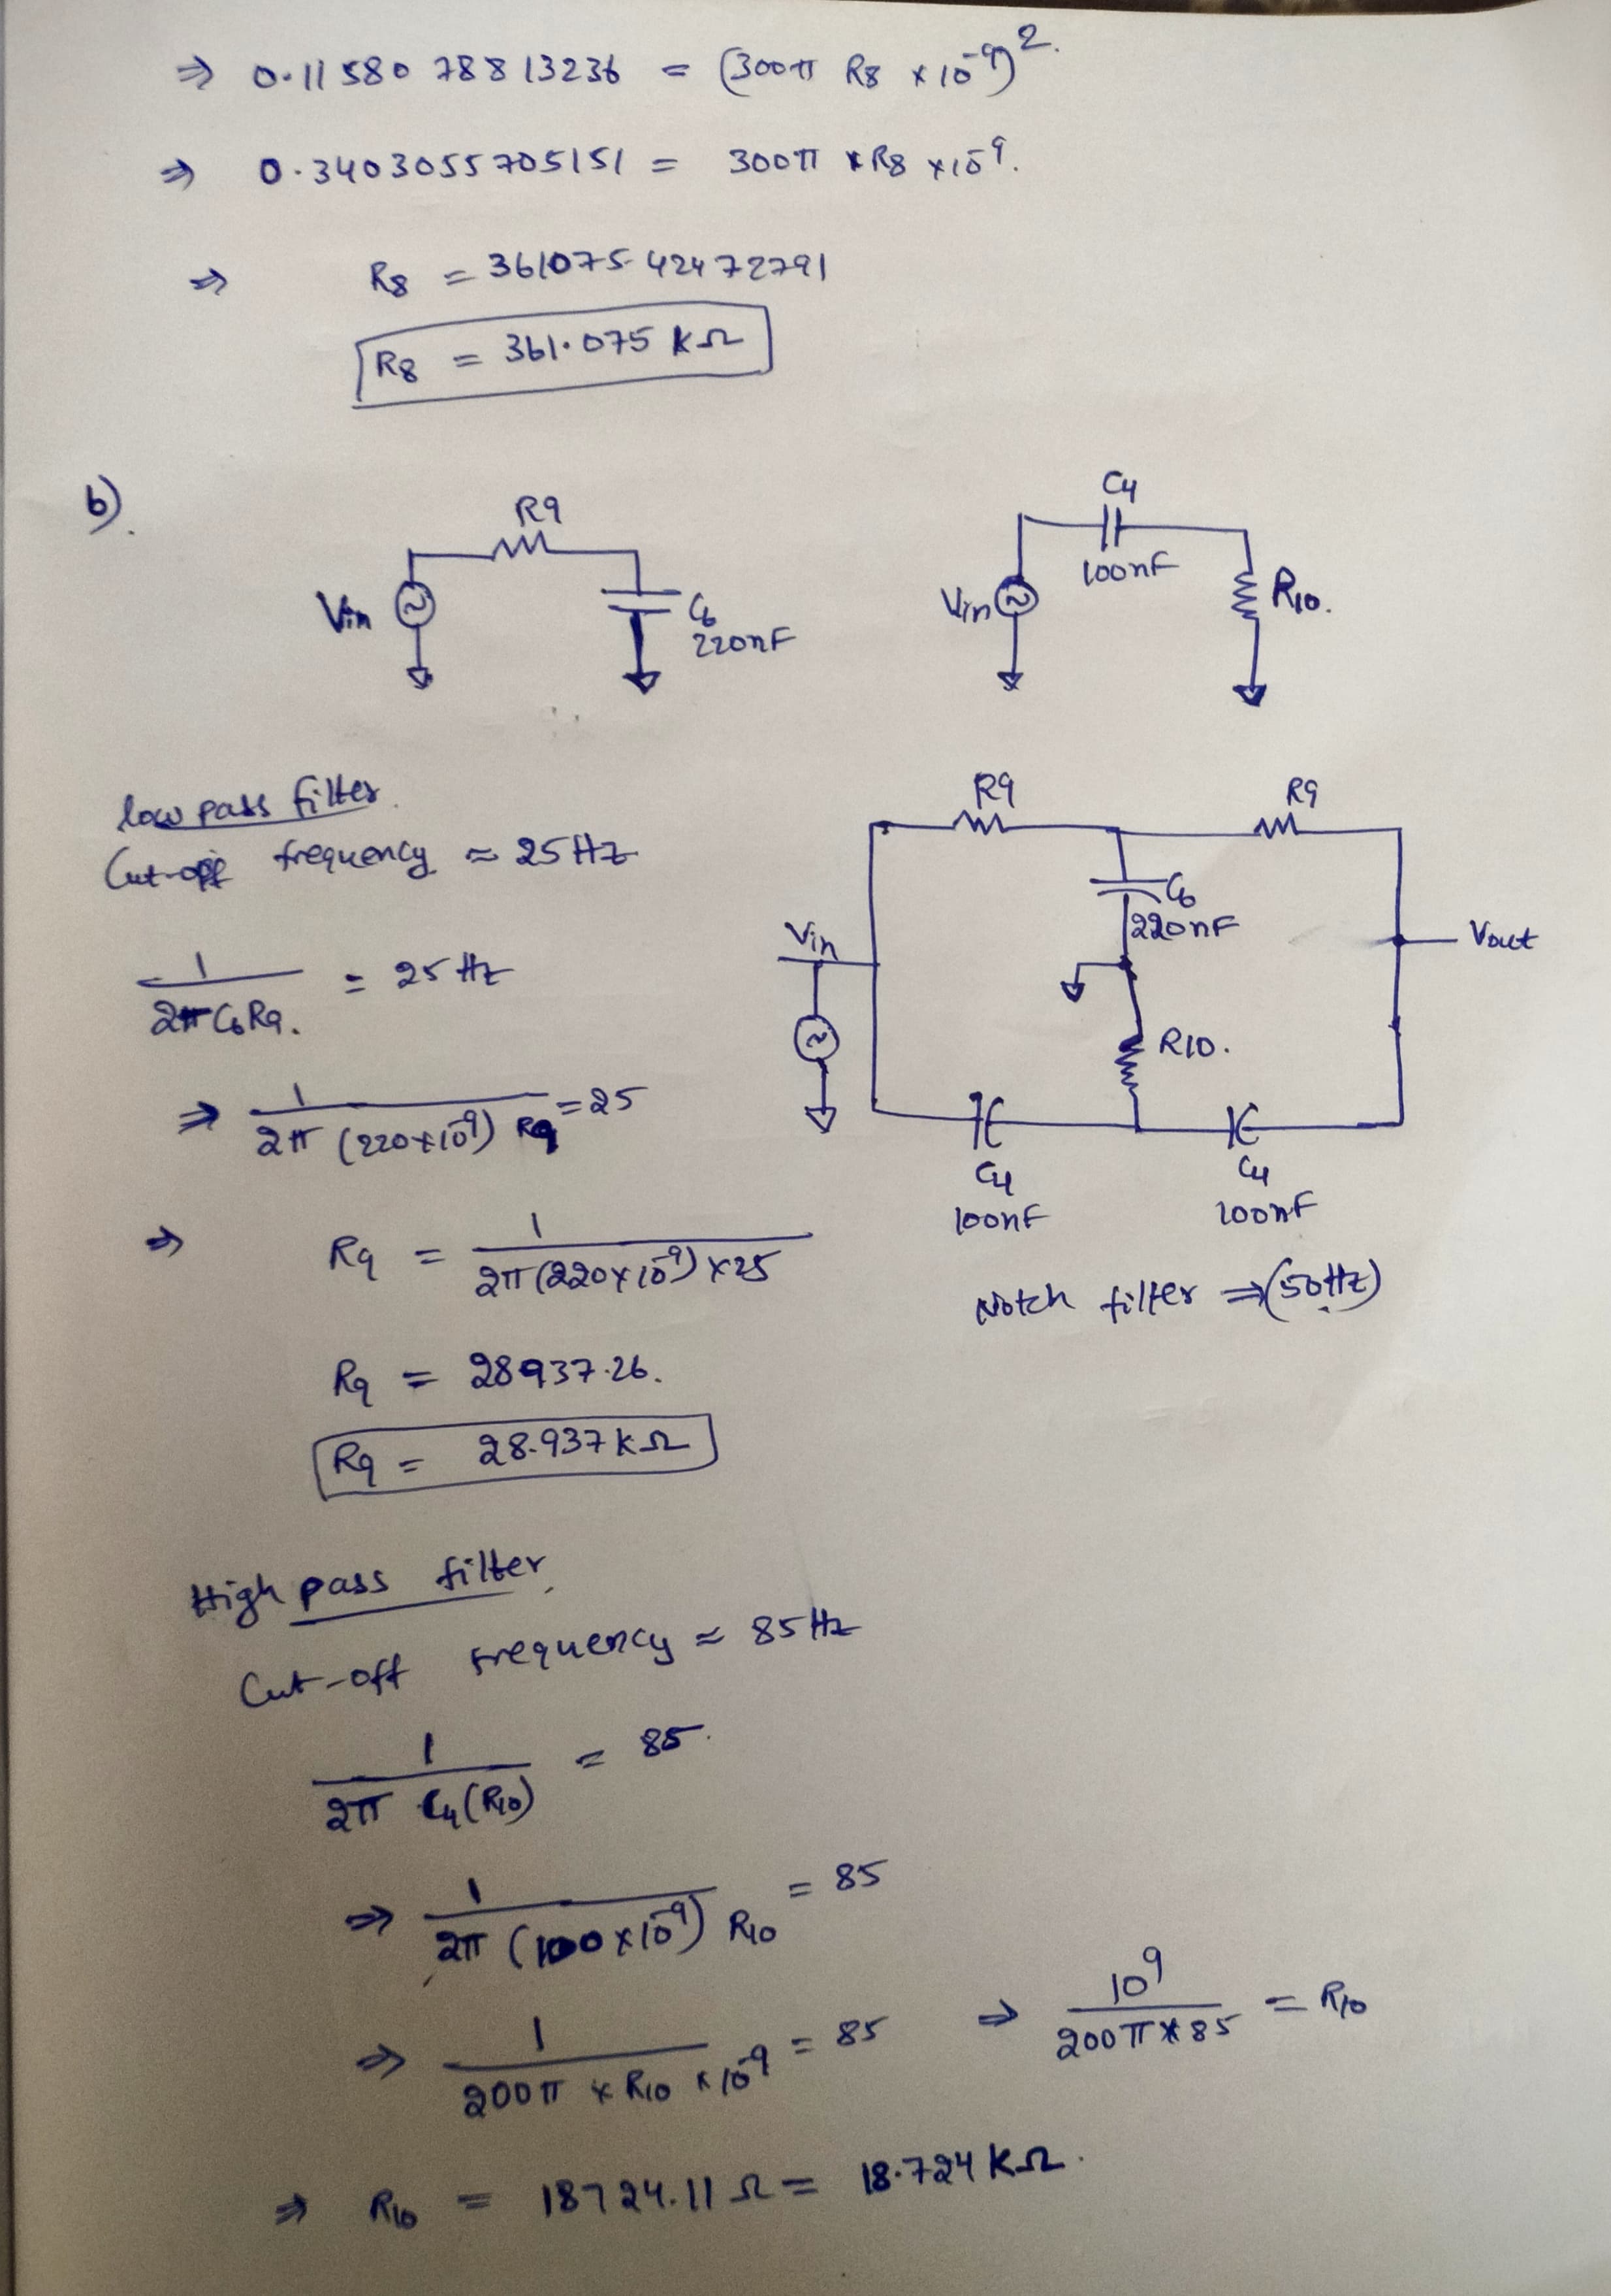 ⇒ 0.1158078813236 = (300π R8 × 10⁻⁹)².
⇒ 0.3403055705151 = 300π × R8 × 10⁻⁹.
⇒ R8 = 361075.42472791
R8 = 361.075 KΩ
b).
R9
Vin
C6
220nF
C4
100nF
Vin
R10.
low pass filter.
Cut-off frequency ≈ 25Hz
1/(2πC6R9.) = 25 Hz
⇒ 1/(2π (220×10⁻⁹) R9) = 25
⇒ R9 = 1/(2π(220×10⁻⁹)×25)
R9 = 28937.26.
R9 = 28.937KΩ
R9
R9
C6
220nF
Vin
Vout
R10.
C4
100nF
C4
100nF
Notch filter ⇒ (50Hz)
High pass filter,
Cut-off frequency ≈ 85Hz
1/(2π C4(R10)) = 85.
⇒ 1/(2π (100×10⁻⁹) R10) = 85
⇒ 1/(200π × R10 × 10⁻⁹) = 85 ⇒ 10⁹/(200π×85) = R10
⇒ R10 = 18724.11Ω = 18.724KΩ.